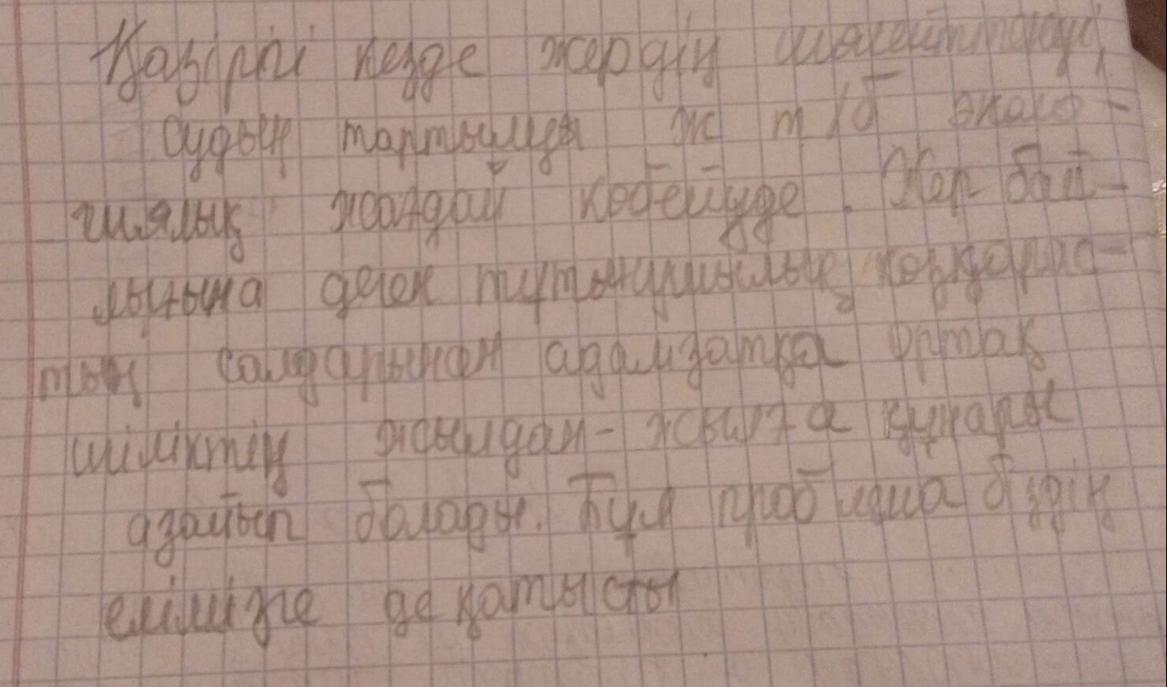 Қазіргі кезде жердің
судың тартылуы ж т/б эколо-
гиялық жағдай көбейуде. Жер бай-
лығына деген тұтынушылық көзқарас-
тың салдарынан адамзатқа ортақ
жылдан-жылға құнары
азайып болады. Бұл проблема біздің
елімізге де қатысты